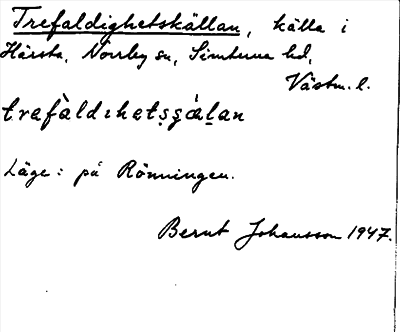 Trefaldighetskällan, källa i
Härsta, Norrby sn, Simtuna hd,
Västm. l.
trefàldıhetṣʂǽḷan
Läge: på Rönningen.
Bernt Johansson 1947.